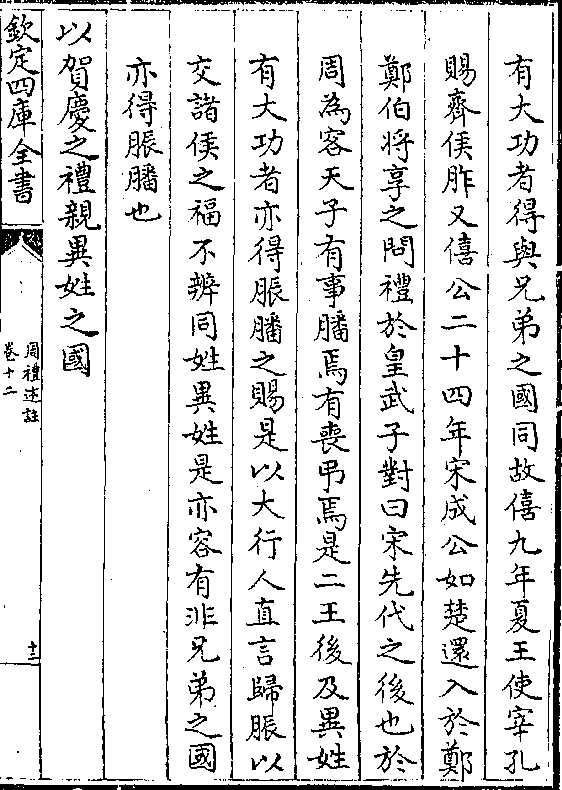 有大功者得與兄弟之國同故僖九年夏王使宰孔
賜齊侯胙又僖公二十四年宋成公如楚還入於鄭
鄭伯將享之問禮於皇武子對曰宋先代之後也於
周為客天子有事膰焉有喪弔焉是二王後及異姓
有大功者亦得脤膰之賜是以大行人直言歸脤以
交諸侯之福不辨同姓異姓是亦容有非兄弟之國
亦得脤膰也
以賀慶之禮親異姓之國
欽定四庫全書
周禮述註
卷十二
十二